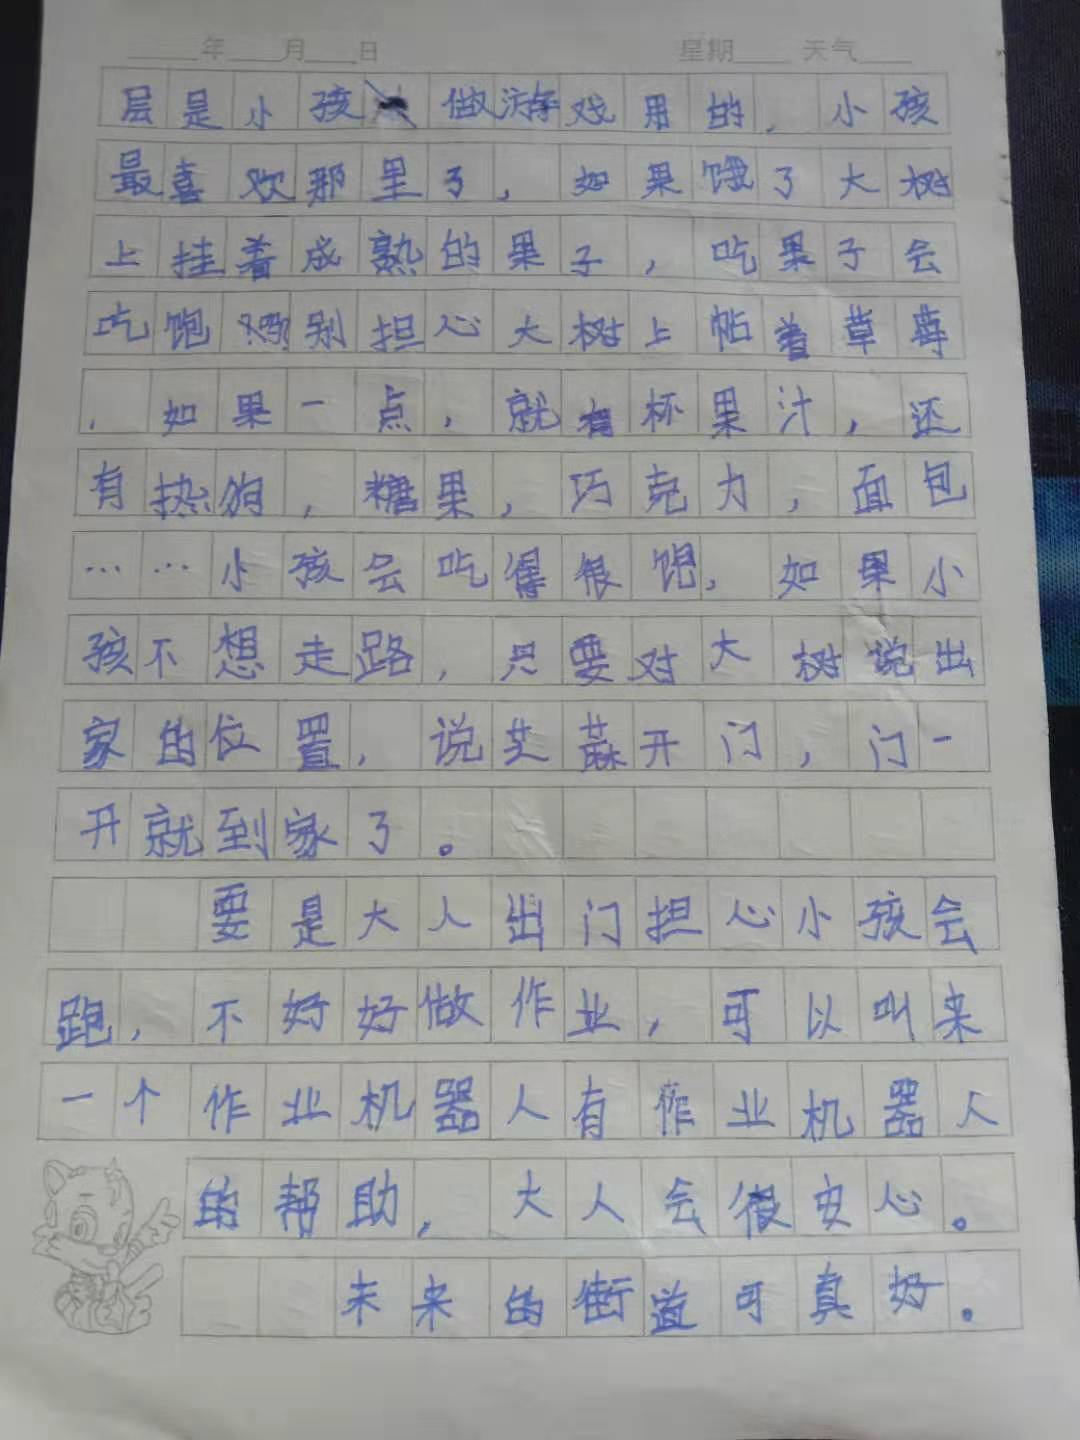 年 月 日 星期 天气
层是小孩做游戏用的,小孩
最喜欢那里了,如果饿了大树
上挂着成熟的果子,吃果子会
吃饱吗?别担心大树上帖着草莓
,如果一点,就有杯果汁,还
有热狗,糖果,巧克力,面包
……小孩会吃得很饱,如果小
孩不想走路,只要对大树说出
家的位置,说芝麻开门,门一
开就到家了。
要是大人出门担心小孩会
跑,不好好做作业,可以叫来
一个作业机器人有作业机器人
的帮助,大人会很安心。
未来的街道可真好。